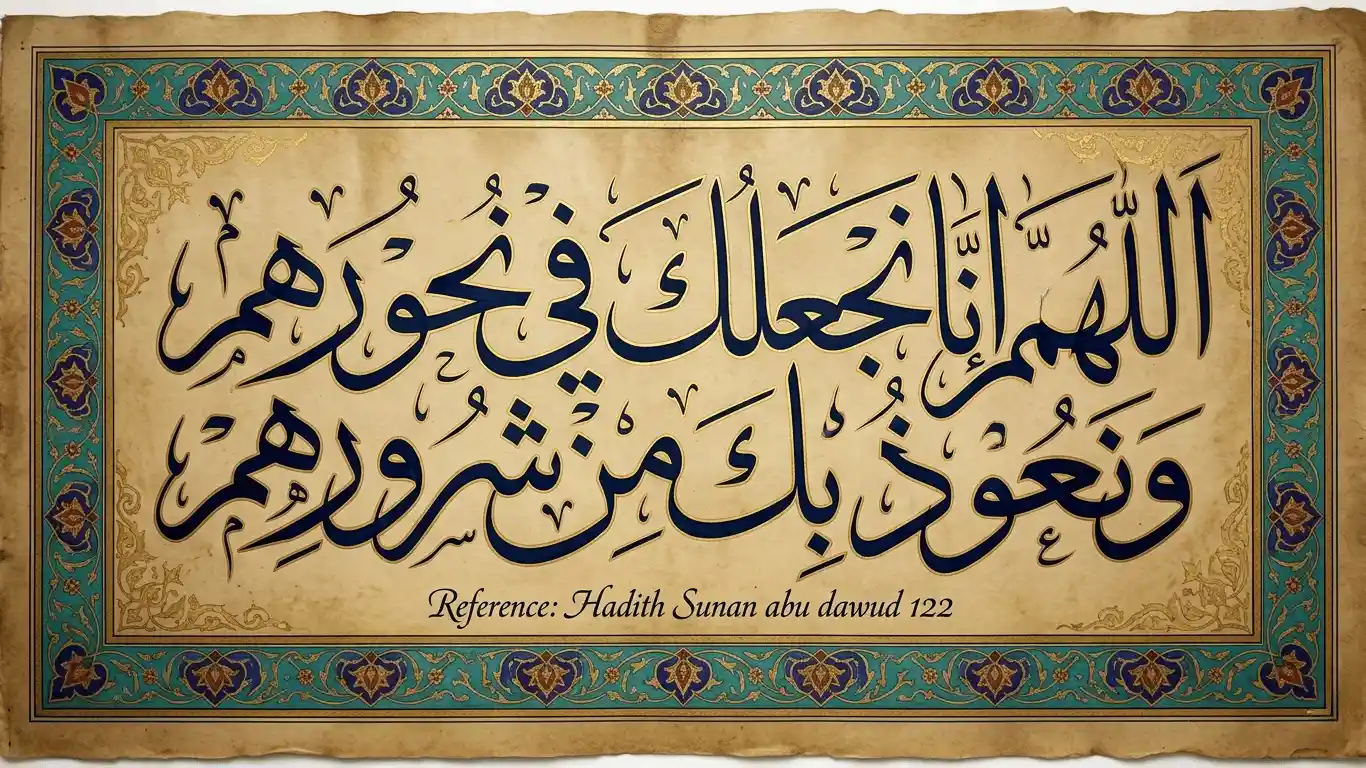 اَللّٰهُمَّ إِنَّا نَجْعَلُكَ فِي نُحُوْرِهِمْ
وَنَعُوْذُ بِكَ مِنْ شُرُوْرِهِمْ
Reference: Hadith Sunan abu dawud 122